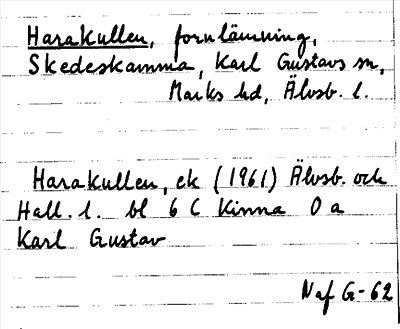 Harakullen, fornlämning,
Skedeskamma, Karl Gustavs sn,
Marks hd, Älvsb. l.
Harakullen, ek (1961) Älvsb. och
Hall. l. bl 6 C Kinna 0 a
Karl Gustav
Naf G-62